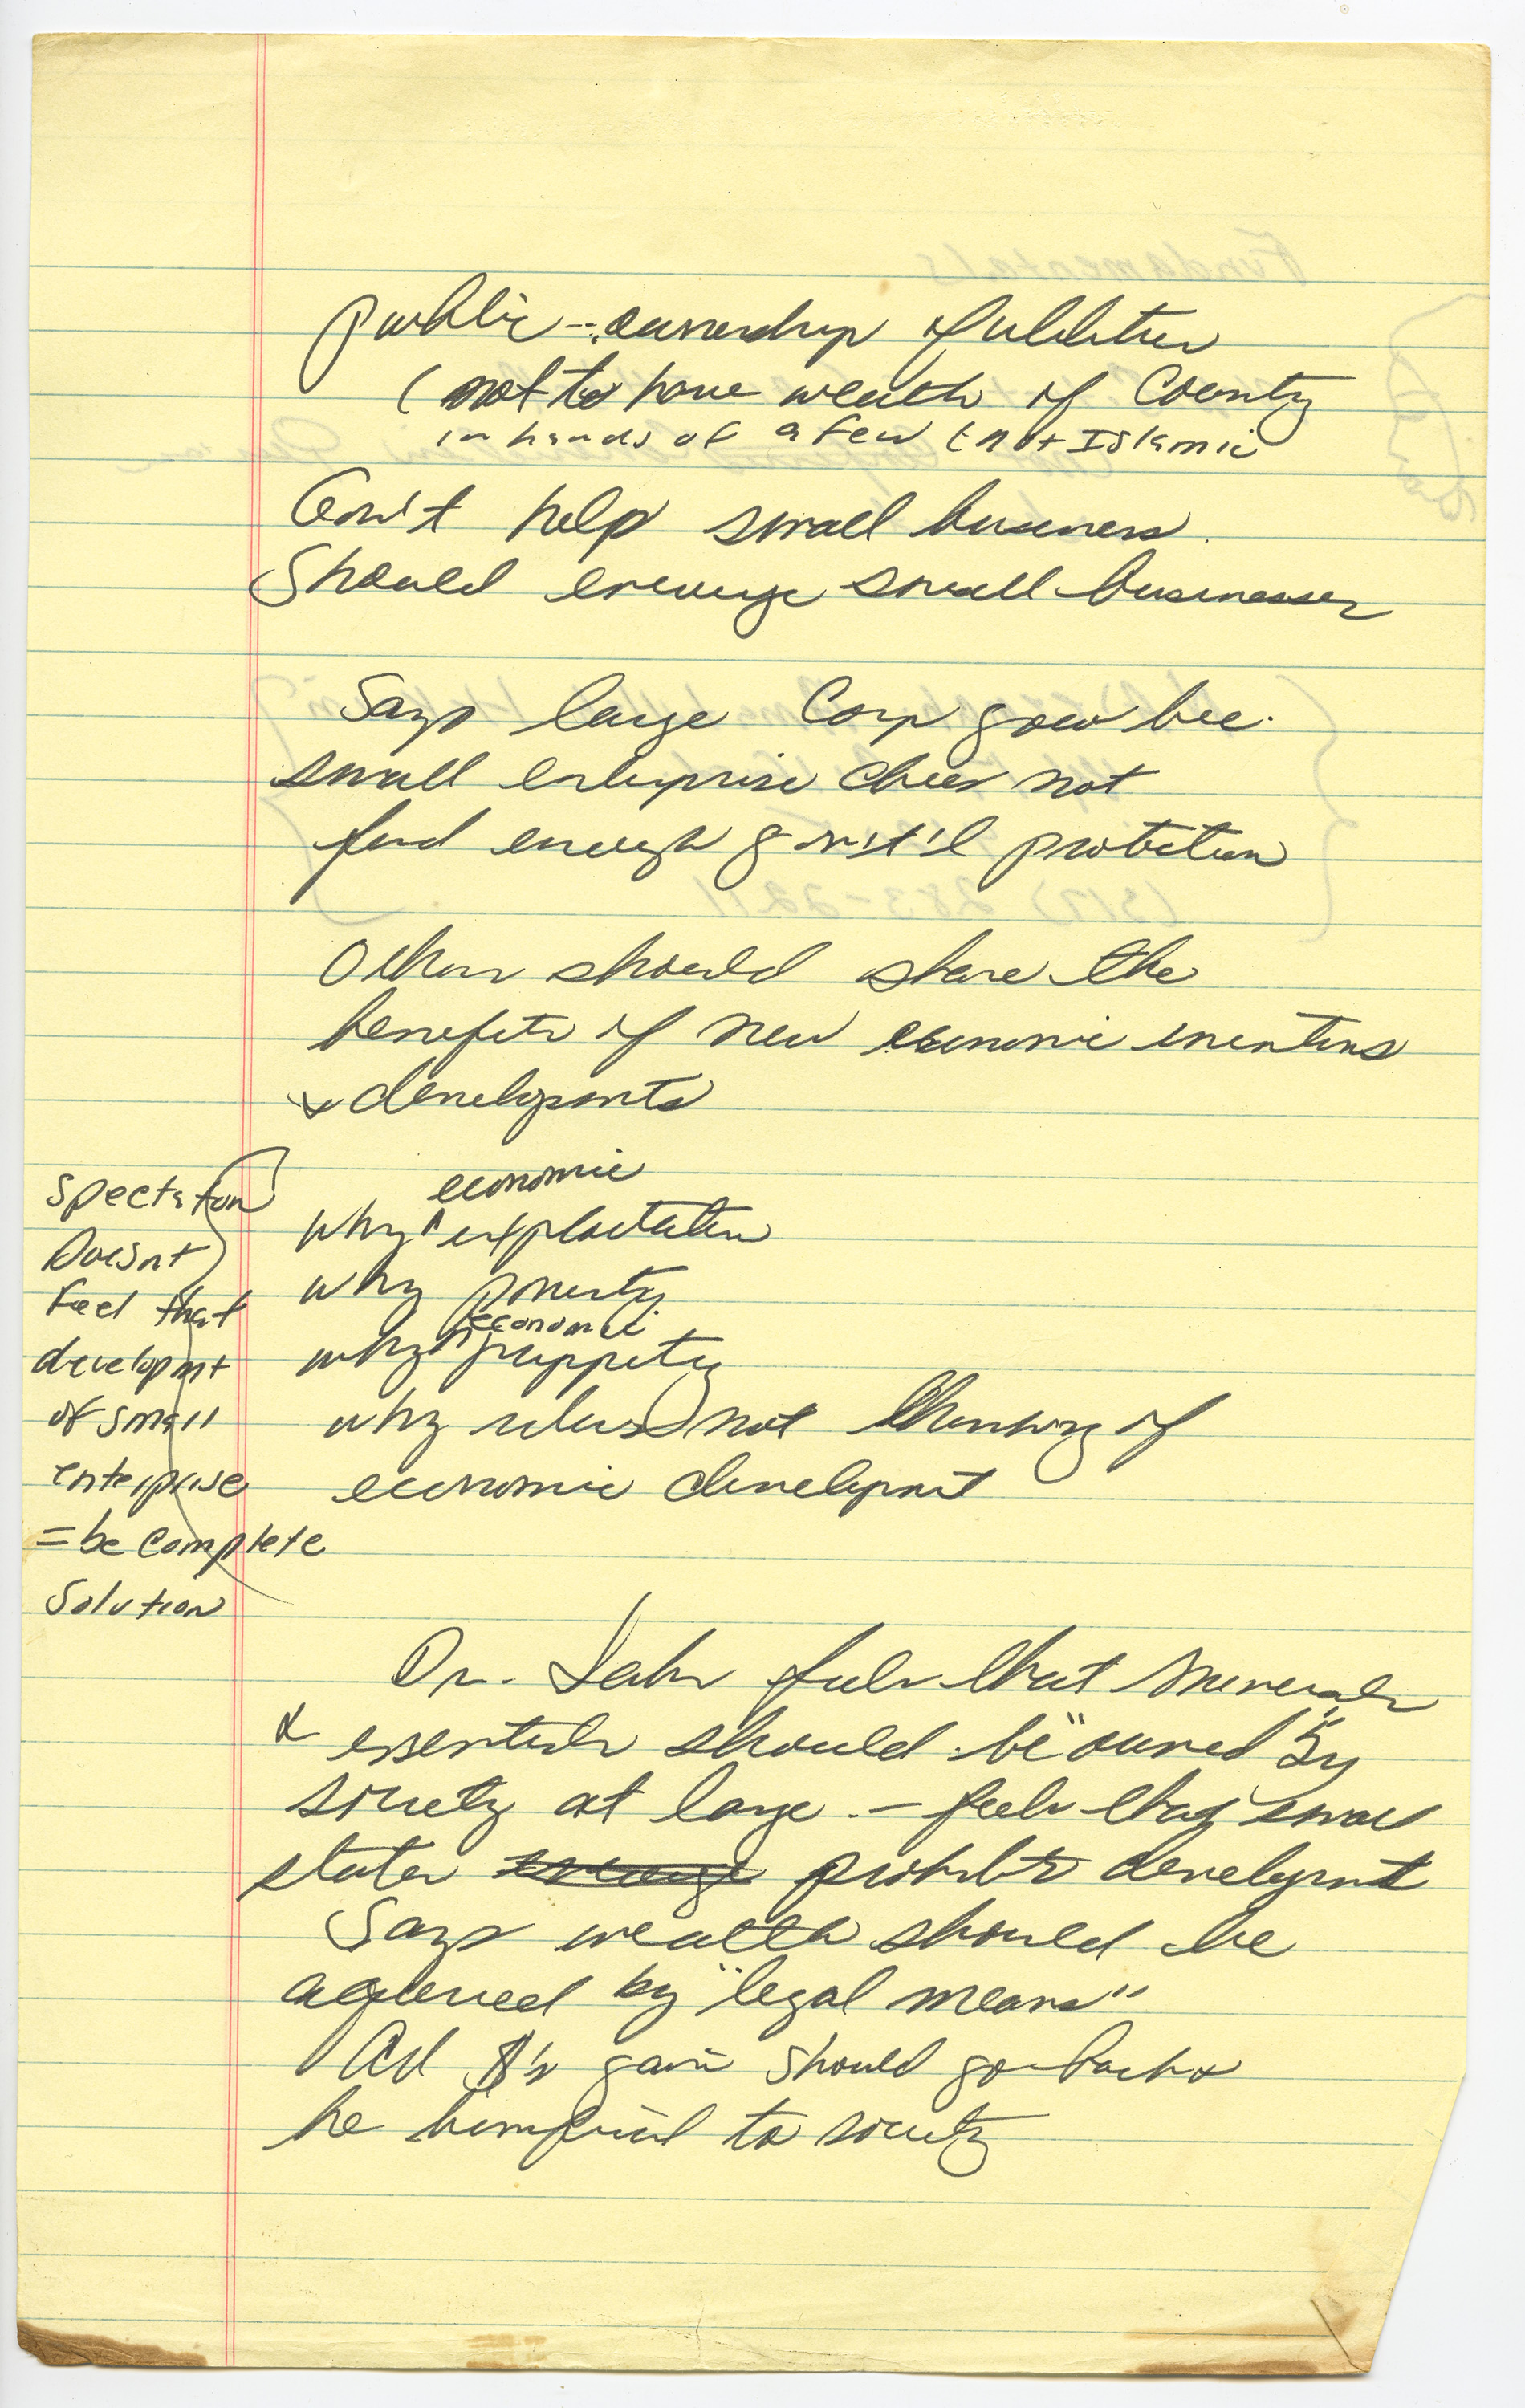 public - ownership of utilities
( not to have wealth of County
in hands of a few ( not Islamic
Gov't help small business.
Should encourage small businesses
Says large Corp grow bec.
small enterprise does not
find enough gov't'l protection
Others should share the
benefits of new economic inventions
& developmts
economic
why ^ exploitation
why poverty
economic
why ^ puppetry
why not thinking of
economic developmt
Spectator
Doesnt
feel that
developmt
of small
enterprise
= be complete
Solution
Dr. feels that minerals
& essentials should be "owned" by
society at large. - feels that small
states prohibits developmt
Says wealth should be
acquired by "legal means"
All $'s gain should go back &
be beneficial to society
Fundamentals
(317) 283-2211